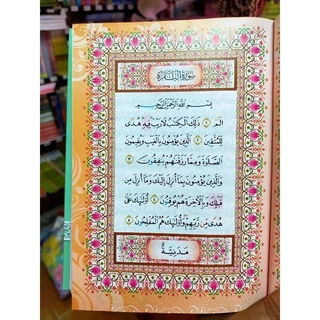 سُورَةُ الْبَقَرَة
بِسْمِ اللَّهِ الرَّحْمَٰنِ الرَّحِيمِ
الم ۝١ ذَٰلِكَ الْكِتَٰبُ لَا رَيْبَ فِيهِ هُدًى
لِلْمُتَّقِينَ ۝٢ الَّذِينَ يُؤْمِنُونَ بِالْغَيْبِ وَيُقِيمُونَ
الصَّلَاةَ وَمِمَّا رَزَقْنَٰهُمْ يُنْفِقُونَ ۝٣
وَالَّذِينَ يُؤْمِنُونَ بِمَا أُنْزِلَ إِلَيْكَ وَمَا أُنْزِلَ مِنْ
قَبْلِكَ وَبِالْآخِرَةِ هُمْ يُوقِنُونَ ۝٤ أُولَٰئِكَ عَلَىٰ
هُدًى مِنْ رَبِّهِمْ وَأُولَٰئِكَ هُمُ الْمُفْلِحُونَ ۝٥
مَدَنِيَّةٌ